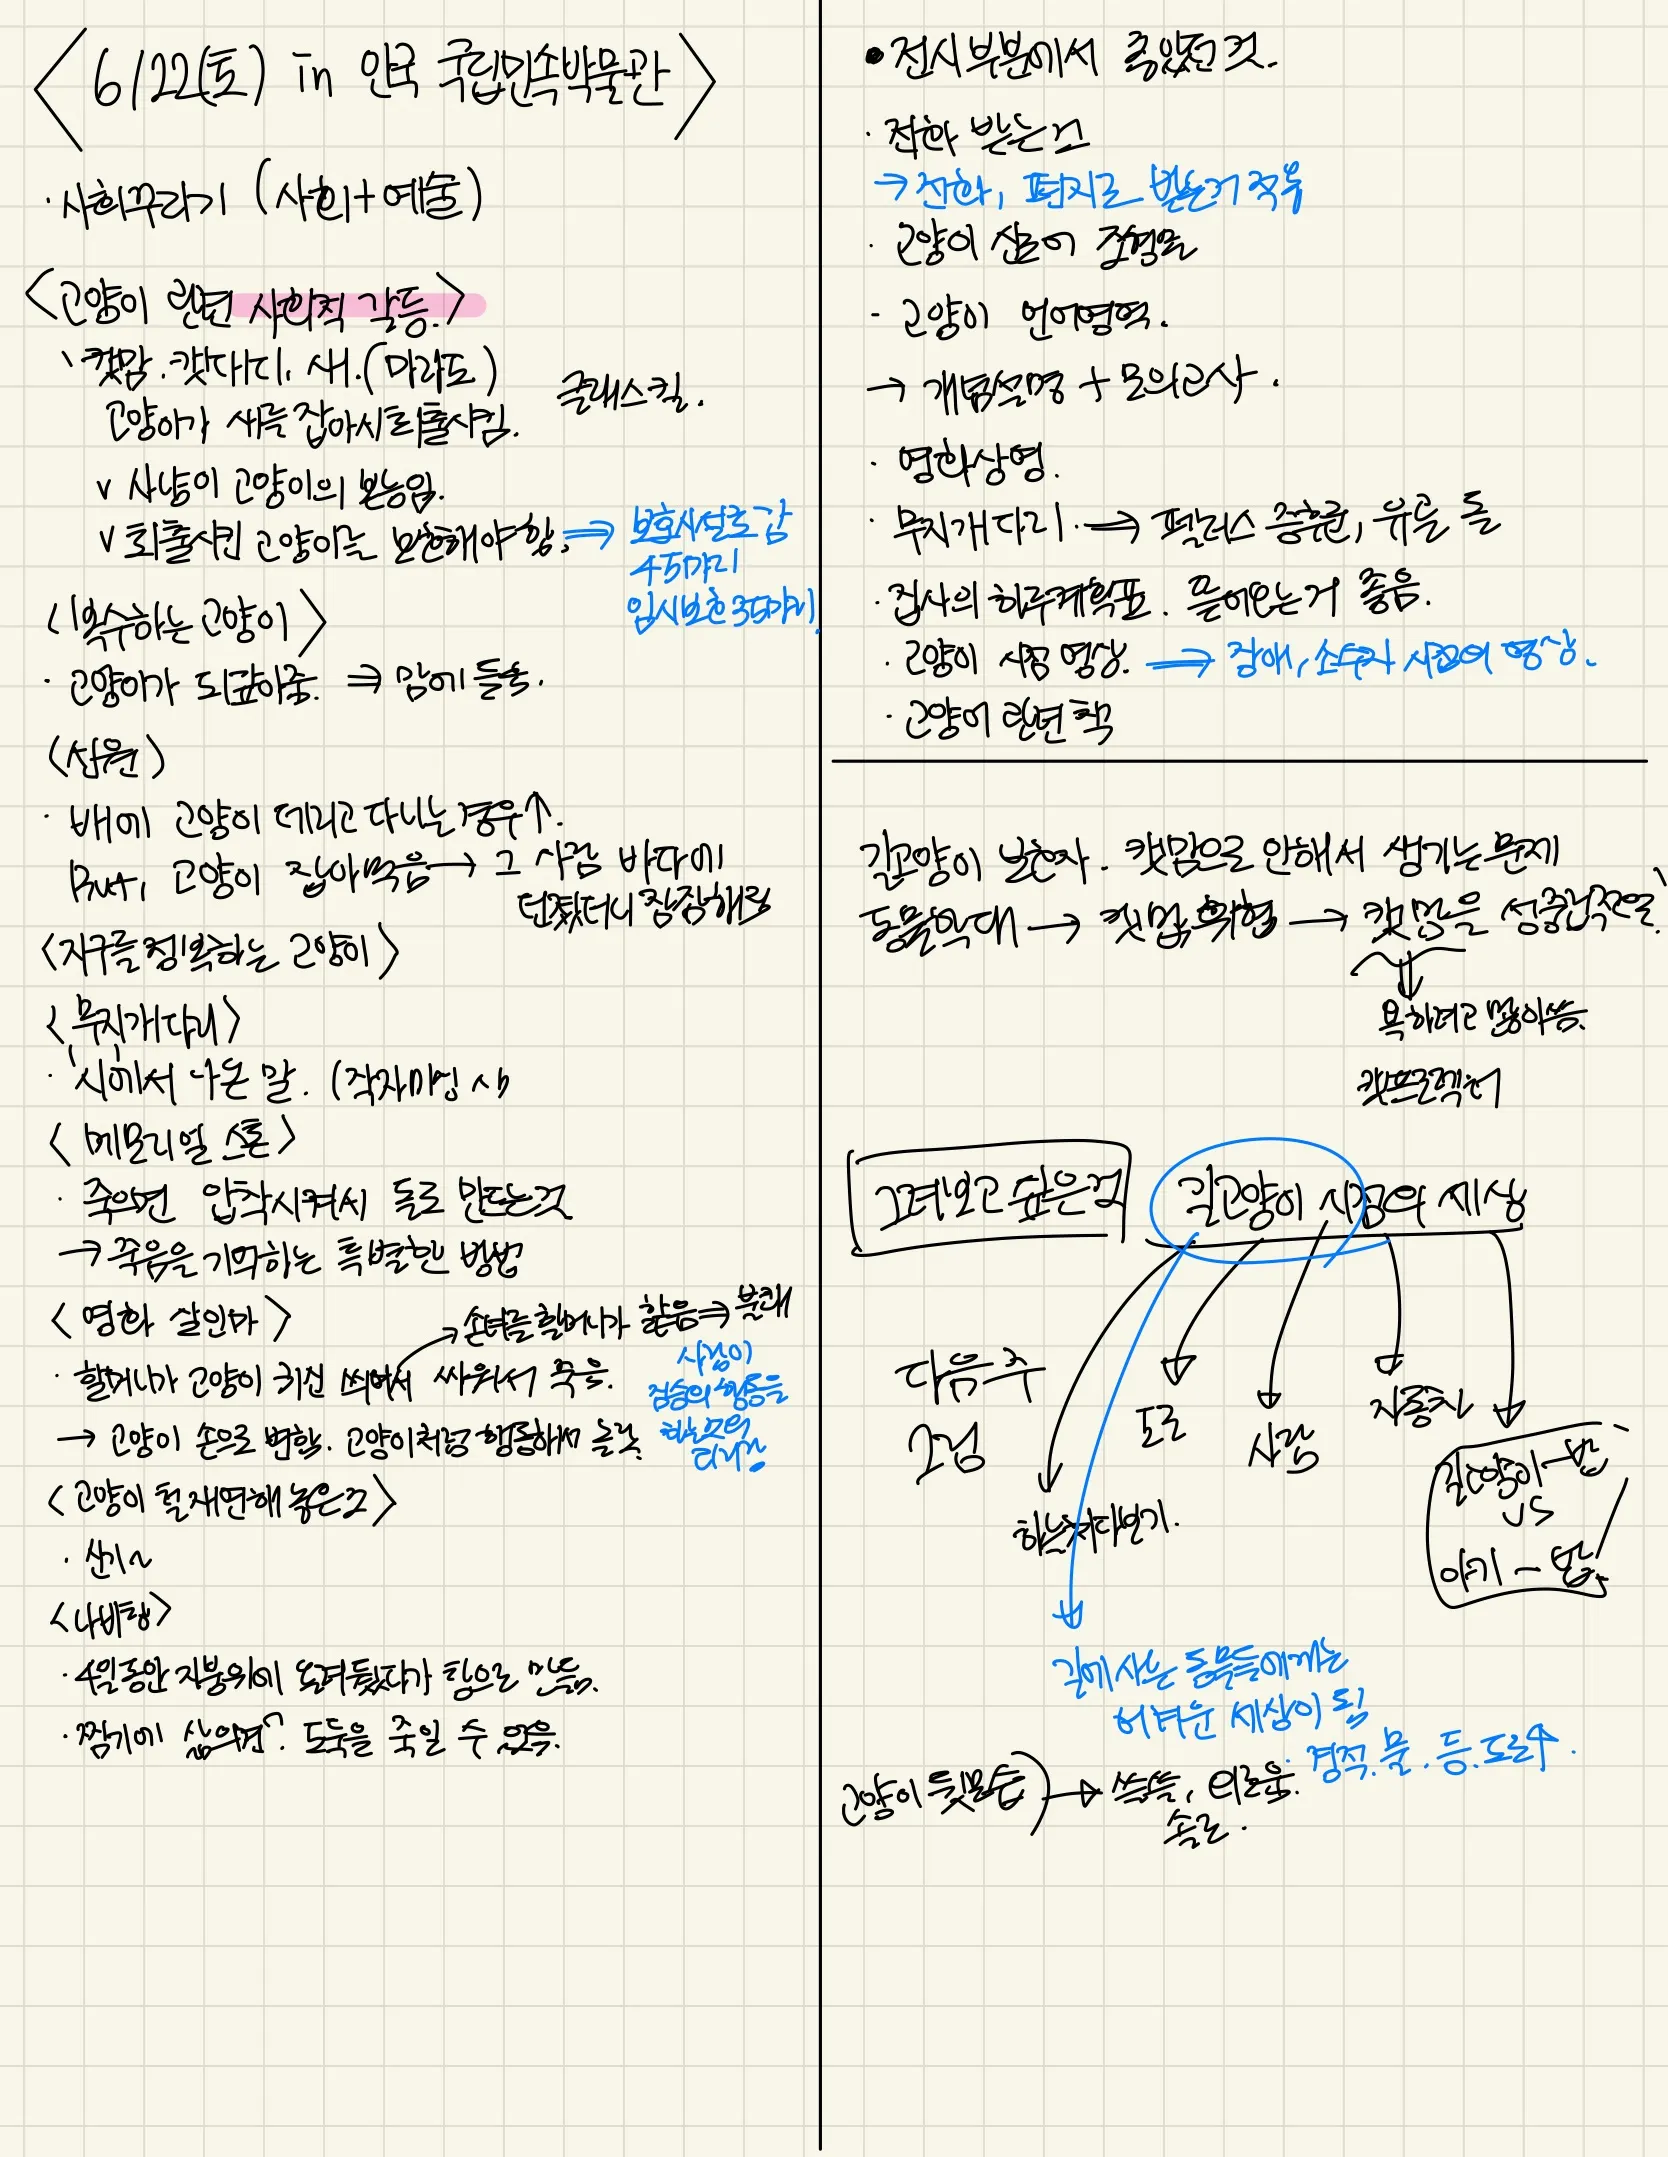 <6/22(토) in 안국 국립민속박물관>
· 사회꾸라기 (사회+예술)
<고양이 관련 사회적 갈등.>
· 캣맘. 캣대디, 새.(마라도)
고양이가 새를 잡아서 퇴출시킴.
클래스킬.
v 사냥이 고양이의 본능임.
v 퇴출시킨 고양이는 보호해야 함. ⇒ 보호시설로 감
45마리
임시보호 35마리
<복수하는 고양이>
· 고양이가 되갚아줌. ⇒ 맘에 들옥.
<선원>
· 배에 고양이 데리고 다니는 경우↑.
But, 고양이 잡아먹음 → 그 사람 바다에
던졌더니 잠잠해짐
<지구를 정복하는 고양이>
<무지개다리>
· 시에서 나온 말. (작자미상 시)
<메모리얼 스톤>
· 죽으면 압착시켜서 돌로 만드는것
→ 죽음을 기억하는 특별한 방법
<영화 살인마>
→ 손녀를 할머니가 핥음 ⇒ 불쾌
· 할머니가 고양이 귀신 씌어서 싸워서 죽음.
사람이
짐승의 행동을
→ 고양이 손으로 변함. 고양이처럼 행동해서 놀람.
<고양이 털 재연해 놓은것>
· 신기~
<나비탕>
· 4일동안 지붕위에 올려뒀다가 탕으로 만듦.
· 찜기에 삶으면? 도둑을 죽일 수 있음.
• 전시부분에서 좋았던 것.
· 전화 받는 것
→ 전화, 편지로 받는거 적용
· 고양이 산로어
· 고양이 언어영역.
→ 개념설명 + 모의고사.
· 영화상영.
· 무지개다리. ⇒ 펠러스 증후군, 유골 돌
· 집사의 하루계획표. 들어오는거 좋음.
· 고양이 시점 영상. ⇒ 장애, 소수자 시점의 영상.
· 고양이 관련 책
길고양이 보호자. 캣맘으로 인해서 생기는 문제
동물학대 → 캣맘 위협 → 캣맘을
욕하려고 많이 씀.
캣프로젝터
그려보고 싶은것 길고양이 시점의 세상
다음주
그림
하늘쳐다보기.
도로
사람
자동차
길고양이-밥
VS
아기-밥
길에 사는 동물들에게는
어려운 세상이 됨
경적. 물. 등. 도로↑.
고양이 뒷모습) → 쓸쓸, 외로움.
솔로.